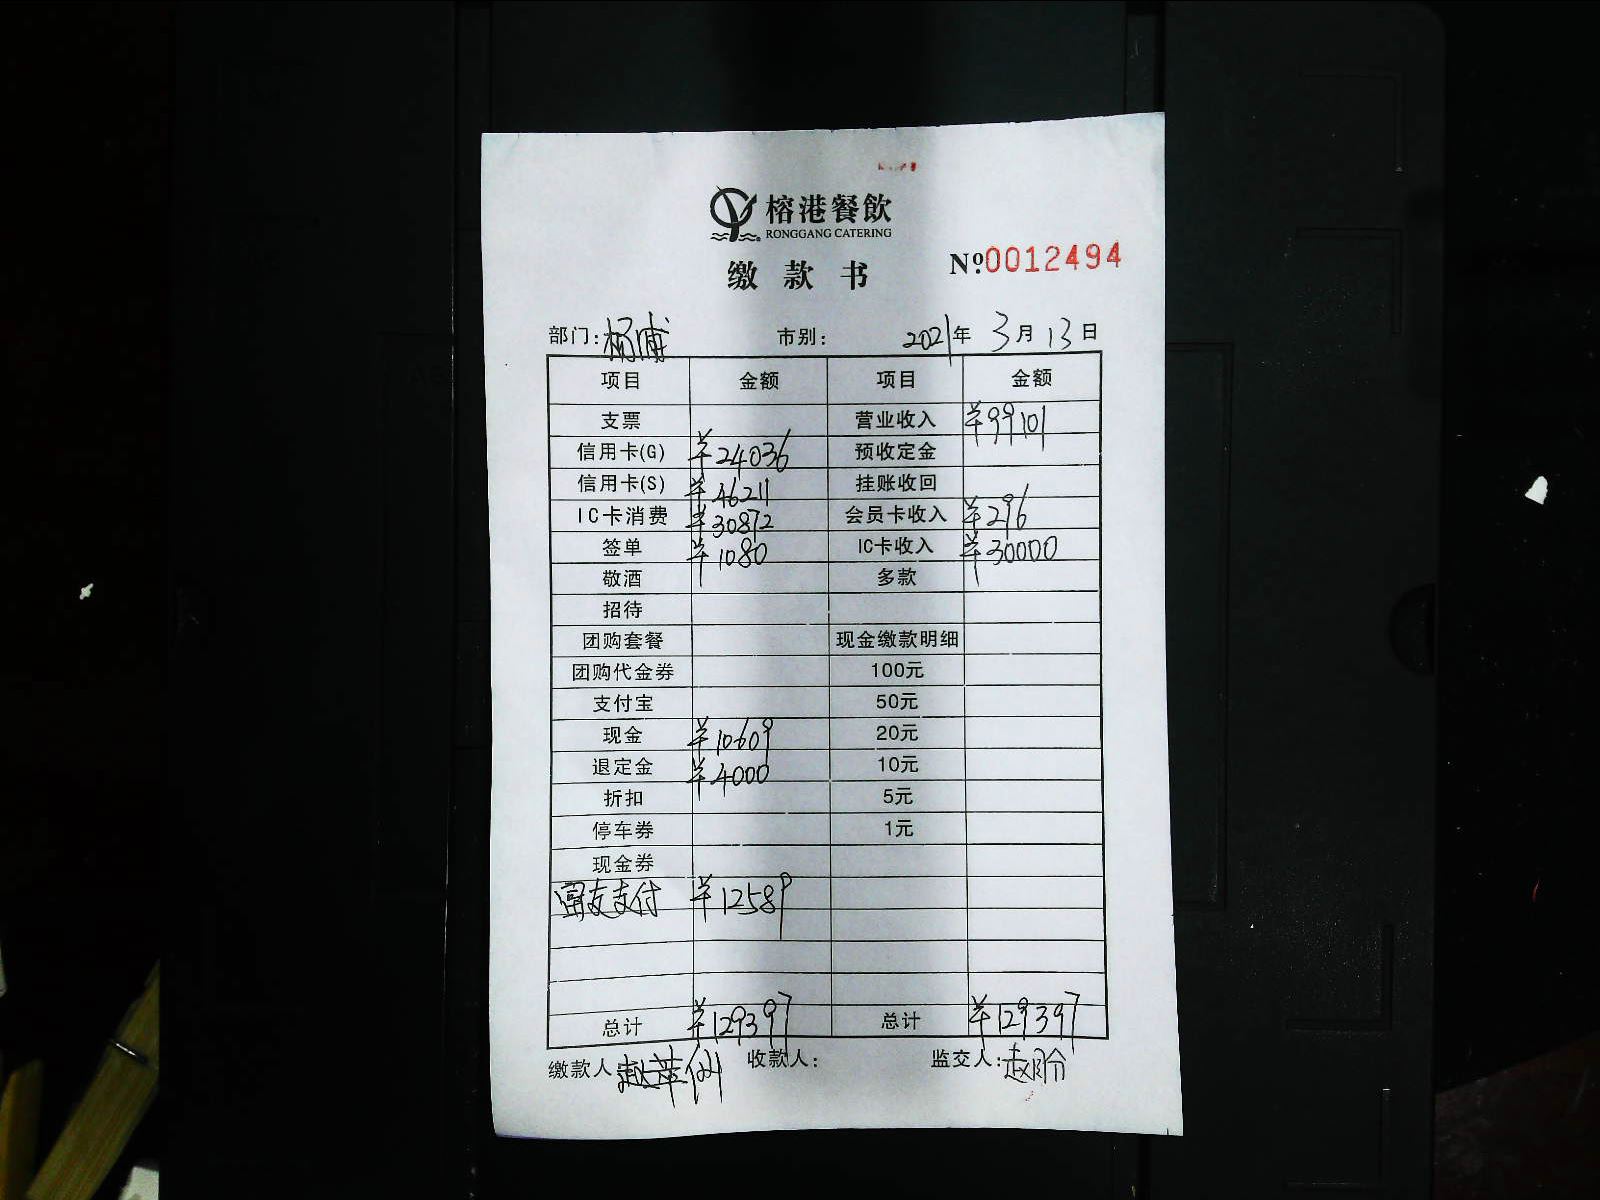 榕港餐飲
RONGGANG CATERING
缴款书
№0012494
部门：杨浦 市别： 2021年3月13日
项目 金额 项目 金额
支票 营业收入 ¥99101
信用卡(G) ¥24036 预收定金
信用卡(S) ¥46211 挂账收回
IC卡消费 ¥30872 会员卡收入 ¥296
签单 ¥1080 IC卡收入 ¥30000
敬酒 多款
招待
团购套餐 现金缴款明细
团购代金券 100元
支付宝 50元
现金 ¥10609 20元
退定金 ¥4000 10元
折扣 5元
停车券 1元
现金券
富友支付 ¥12589
总计 ¥129397 总计 ¥129397
缴款人 收款人： 监交人：